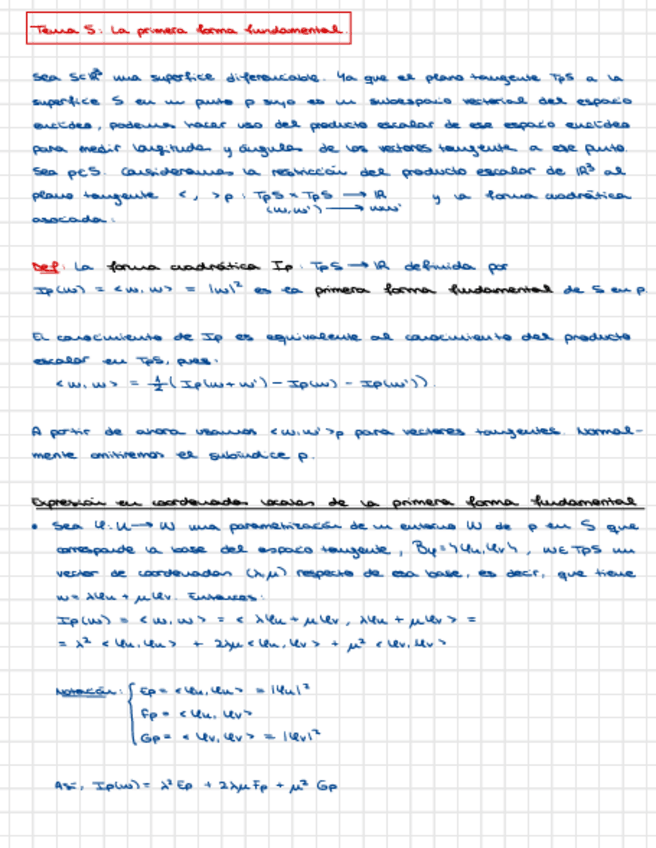 Tema 5: La primera forma fundamental.
Sea S⊂ℝ³ una superficie diferenciable. Ya que el plano tangente TpS a la
superficie S en un punto p suyo es un subespacio vectorial del espacio
euclídeo, podemos hacer uso del producto escalar de ese espacio euclídeo
para medir longitudes y ángulos de los vectores tangente a ese punto.
Sea p∈S. Consideramos la restricción del producto escalar de ℝ³ al
plano tangente < , >p : TpS × TpS → ℝ y la forma cuadrática
(w,w') → ww'
asociada:
Def: La forma cuadrática Ip : TpS → ℝ definida por
Ip(w) = <w, w> = |w|² es la primera forma fundamental de S en p.
El conocimiento de Ip es equivalente al conocimiento del producto
escalar en TpS, pues:
<w, w> = 1/2 (Ip(w + w') - Ip(w) - Ip(w')).
A partir de ahora usamos <w, w'>p para vectores tangentes. Normal-
mente omitiremos el subíndice p.
Expresión en coordenadas locales de la primera forma fundamental
• Sea φ: U → W una parametrización de un entorno W de p en S que
corresponde la base del espacio tangente, Bφ = {φu, φv}, w ∈ TpS un
vector de coordenadas (λ,μ) respecto de esa base, es decir, que tiene
w = λφu + μφv. Entonces:
Ip(w) = <w, w> = < λφu + μφv, λφu + μφv > =
= λ² <φu, φu> + 2λμ <φu, φv> + μ² <φv, φv>
Notación: { Ep = <φu, φu> = |φu|²
Fp = <φu, φv>
Gp = <φv, φv> = |φv|²
Así, Ip(w) = λ² Ep + 2λμ Fp + μ² Gp